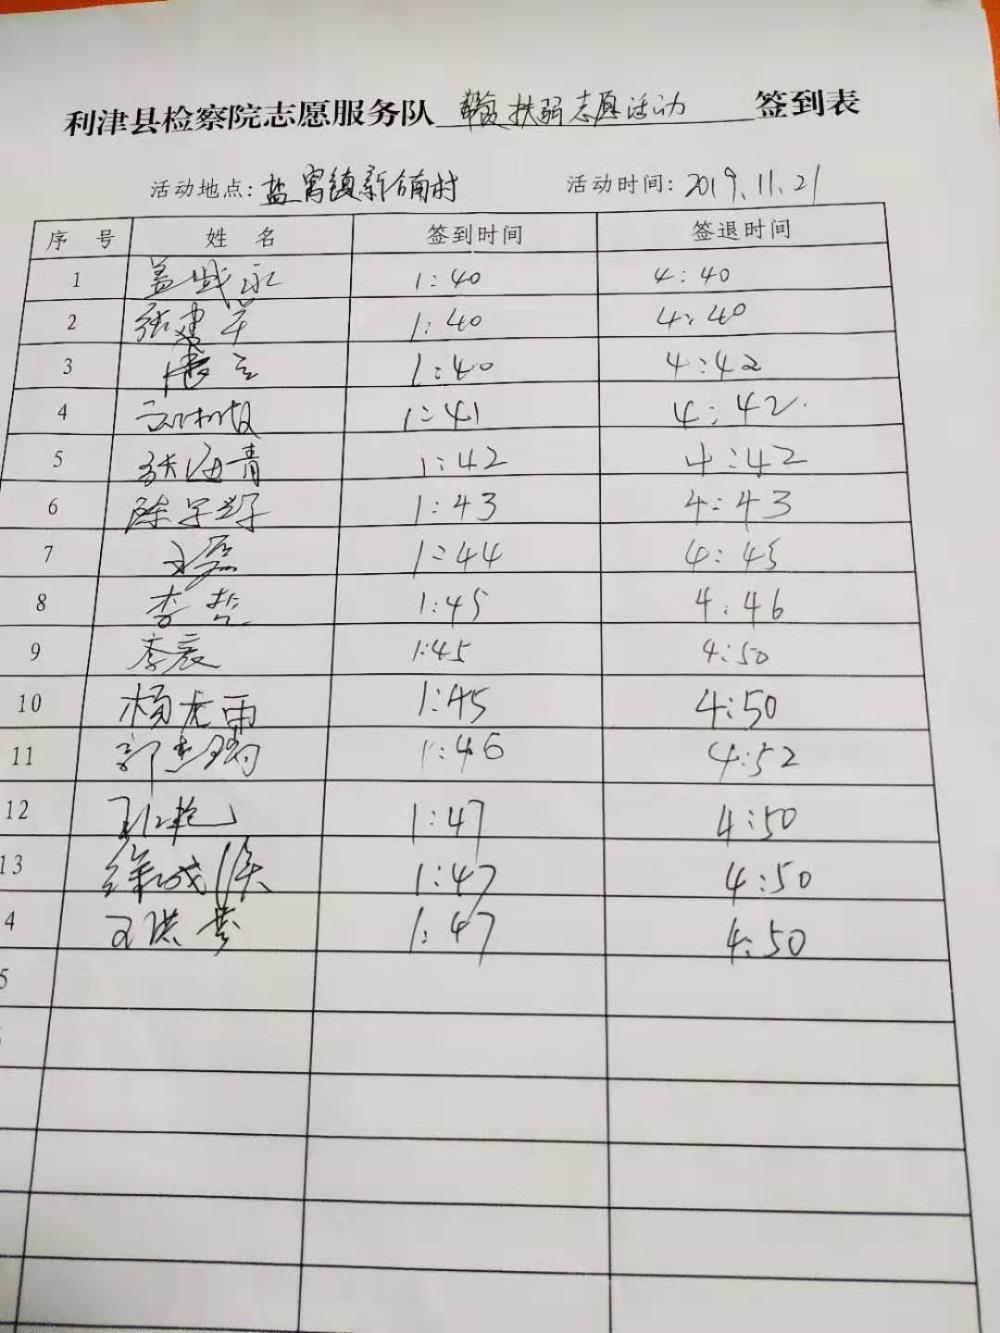 利津县检察院志愿服务队 扶弱志愿活动 签到表
活动地点: 盐窝镇新台南村 活动时间: 2019.11.21
序 号 姓 名 签到时间 签退时间
1 盖战永 1:40 4:40
2 张建军 1:40 4:40
3 1:40 4:42
4 1:41 4:42
5 张海青 1:42 4:42
6 陈学辉 1:43 4:43
7 王磊 1:44 4:45
8 李哲 1:45 4:46
9 李宸 1:45 4:50
10 杨龙雨 1:45 4:50
11 郭 1:46 4:52
12 王红艳 1:47 4:50
13 徐成 1:47 4:50
4 王洪 1:47 4:50
5